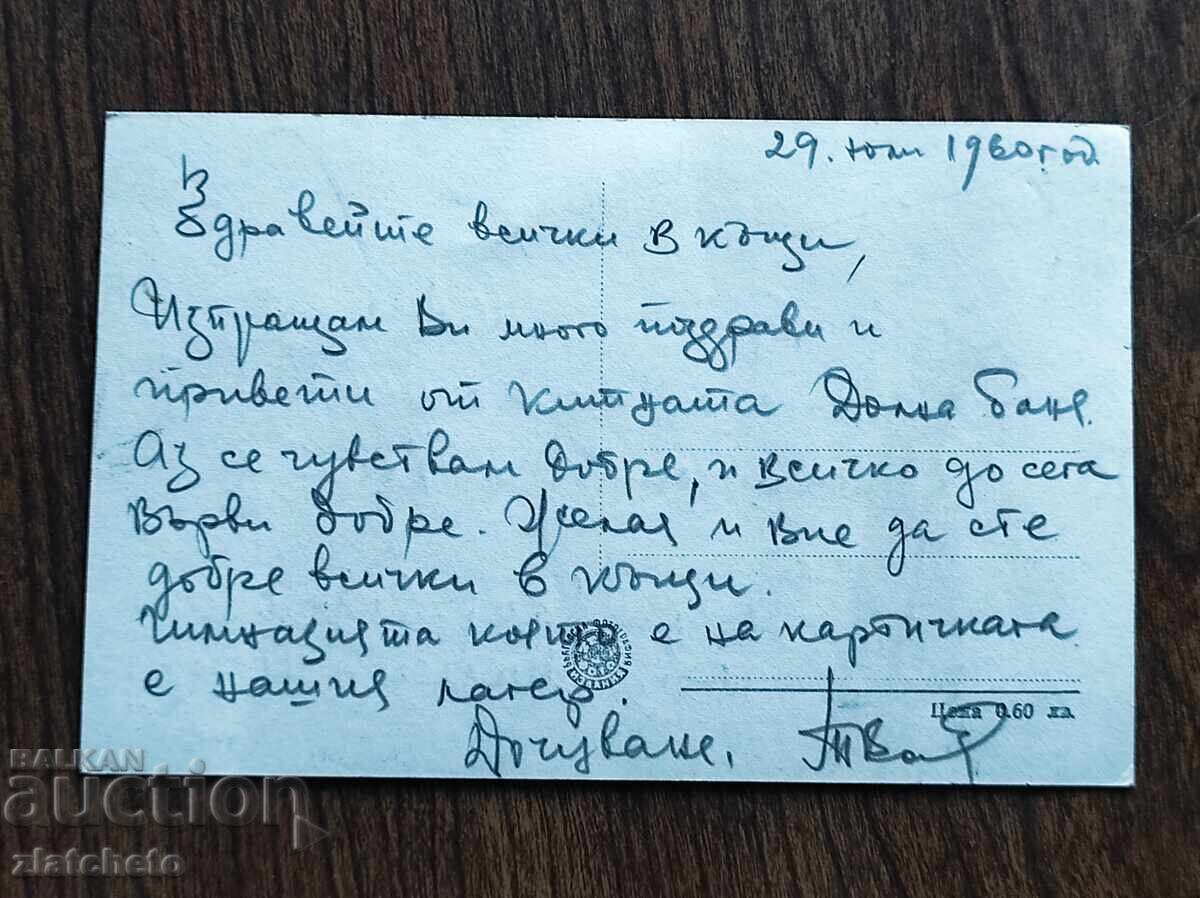 29. юли 1960 год
Здравейте всички в къщи,
Изпращам Ви много поздрави и
привети от китната Долна баня.
Аз се чувствам добре, и всичко до сега
върви добре. Желая и вие да сте
добре всички в къщи.
Гимназията която е на картичката
е нашия лагер.
Цена 0.60 лв.
Дочуване,
BALKAN
auction
zlatcheto